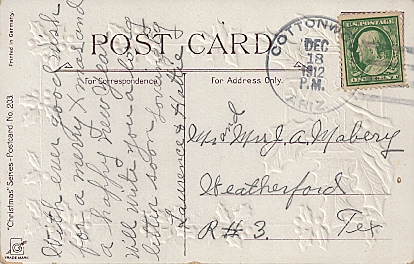 Printed in Germany.
POST CARD
For Correspondence.
For Address Only.
"Christmas" Series—Postcard No. 203.
TRADE MARK
COTTONW
DEC
18
1912
P.M.
ARIZ.
U.S. POSTAGE
With ever good wish
for a merry Xmas and
a happy New Year
will write you a long
letter soon lovingly
Laurence & Hattie
Mr & Mrs J. A. Mabery
Weatherford
R # 3. Tex